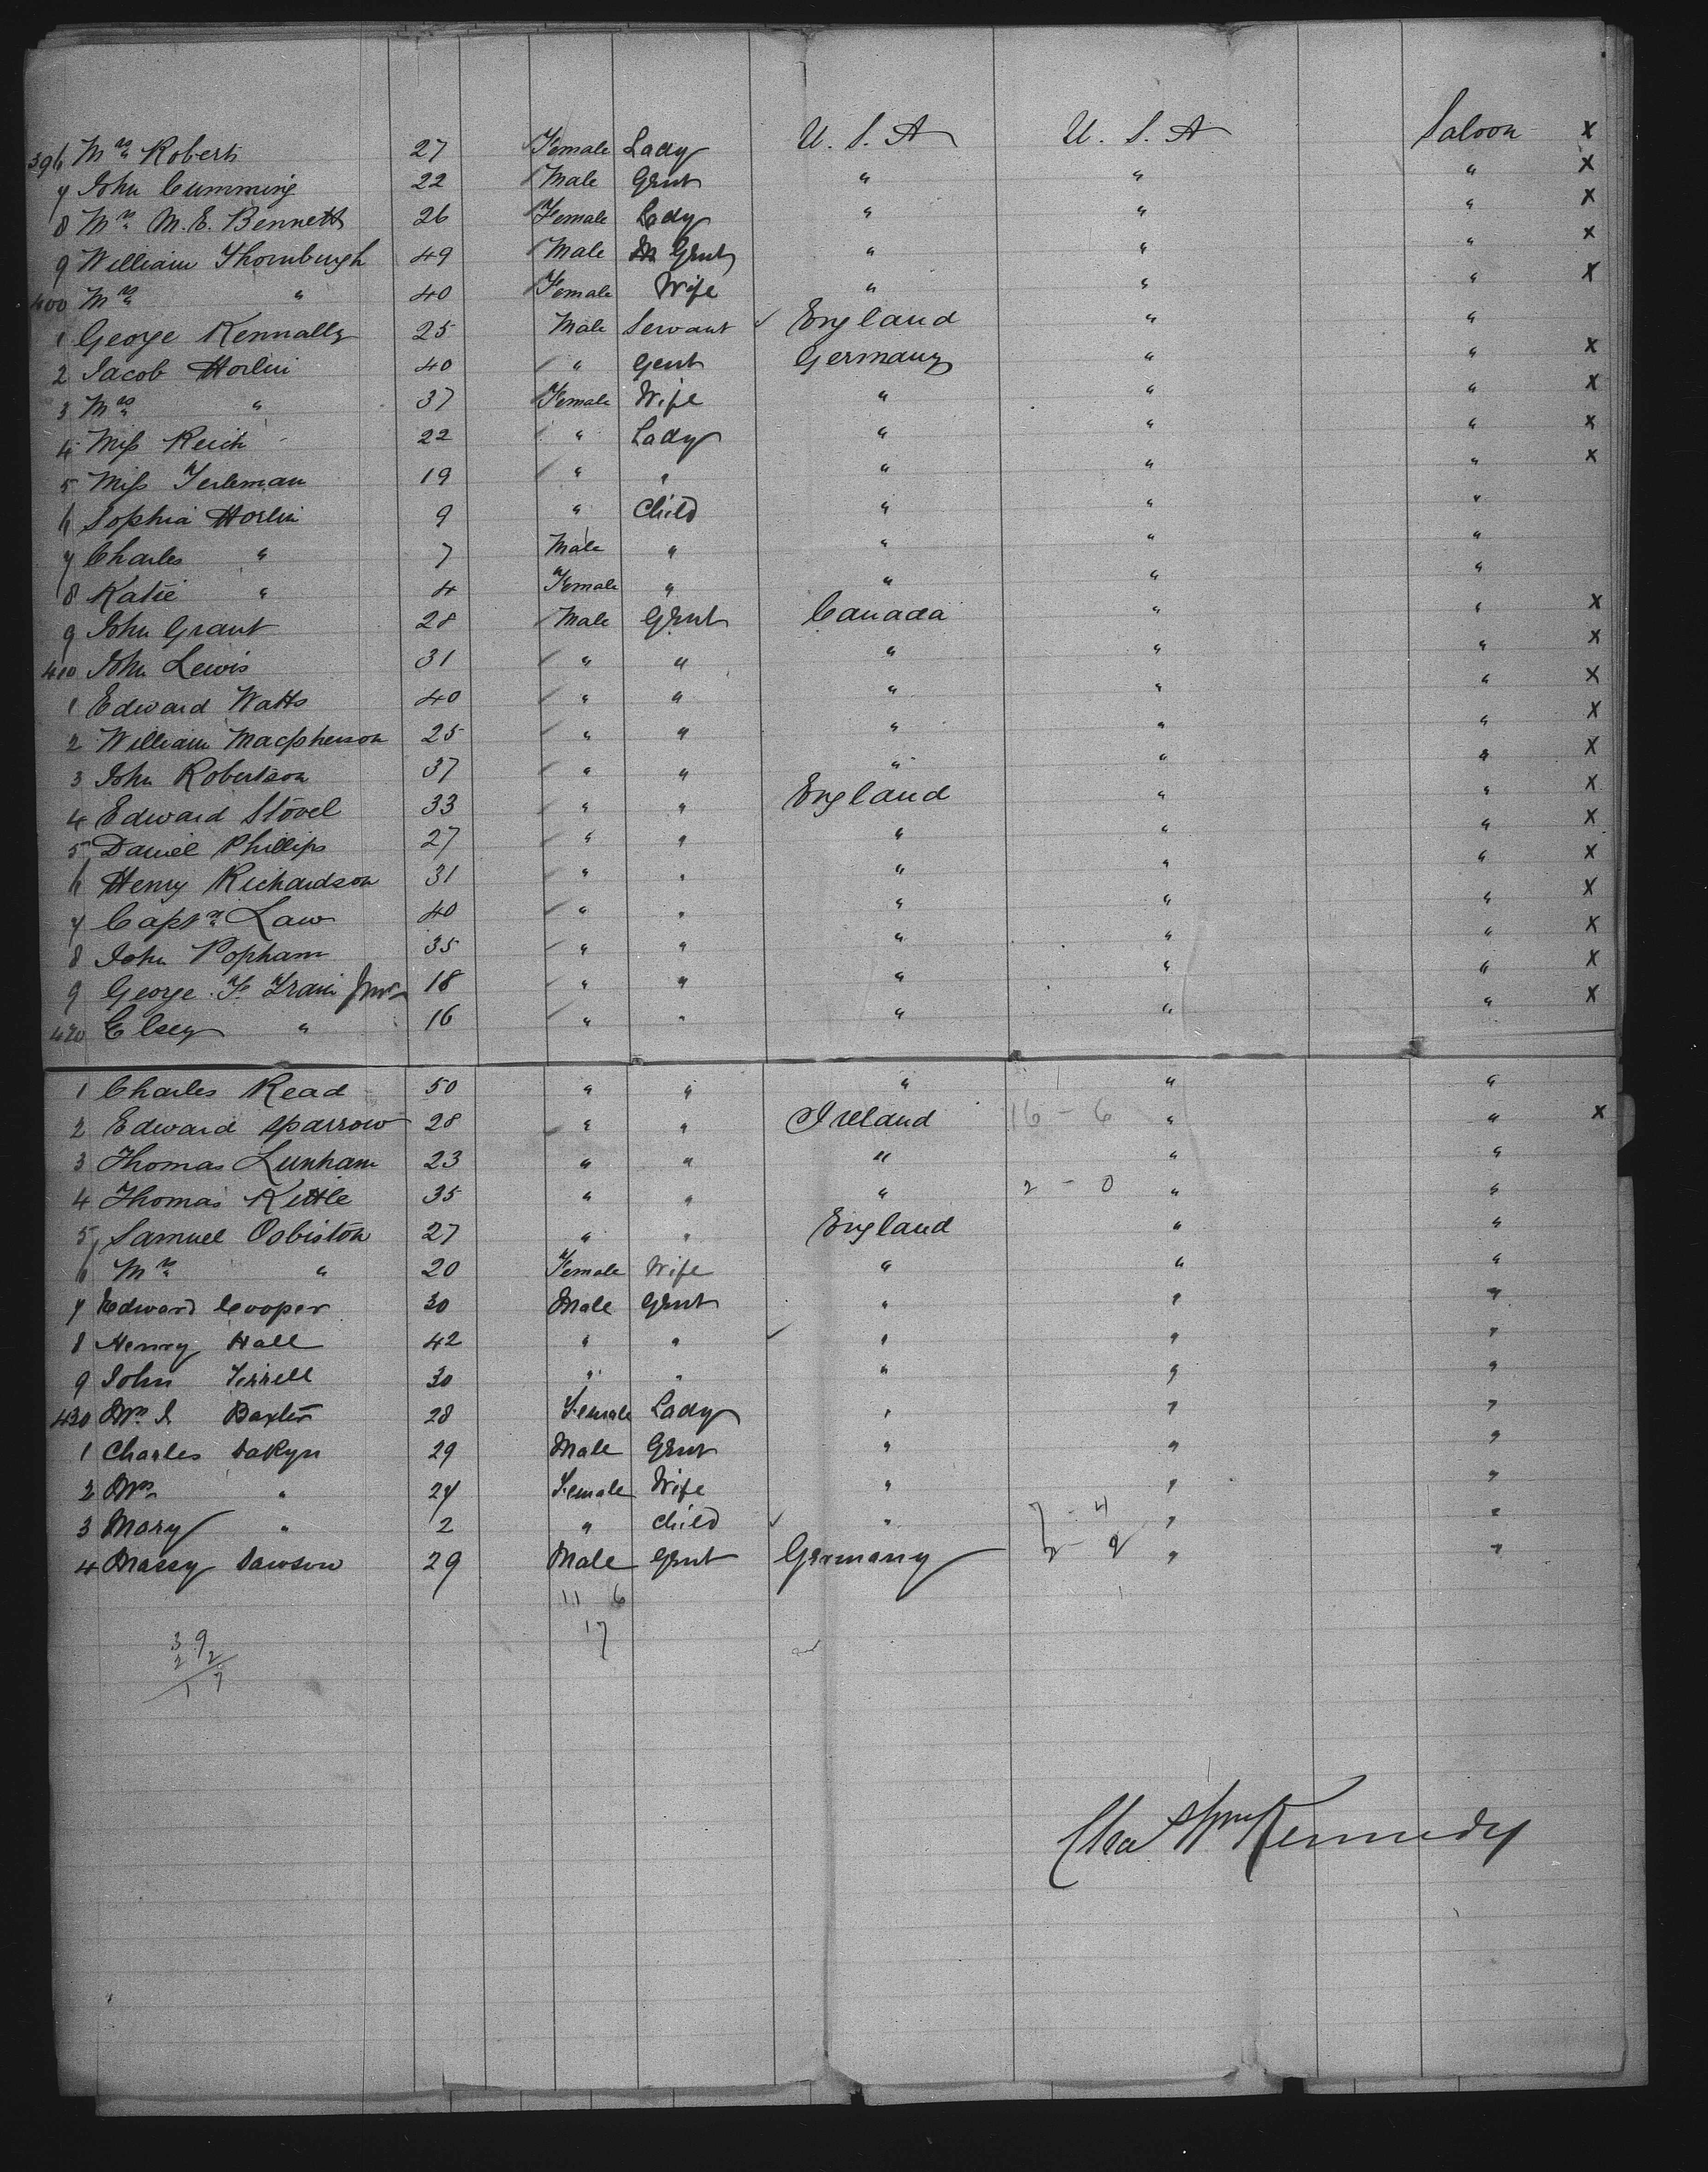 396 Mrs Roberts 27 Female Lady U. S. A U. S. A Saloon X
7 John Cumming 22 Male Gent " " " X
8 Mrs M. E. Bennett 26 Female Lady " " " X
9 William Thornburgh 49 Male Gent " " " X
400 Mrs " 40 Female Wife " " " X
1 George Kennally 25 Male Servant ✓ England " "
2 Jacob Horlin 40 " Gent Germany " " X
3 Mrs " 37 Female Wife " " " X
4 Miss Reich 22 " Lady " " " X
5 Miss 19 " " " " " X
6 Sophia Horlin 9 " Child " " "
7 Charles " 7 Male " " " "
8 Katie " 4 Female " " " "
9 John Grant 28 Male Gent Canada " " X
410 John Lewis 31 " " " " " X
1 Edward Watts 40 " " " " " X
2 William Macpherson 25 " " " " " X
3 John Robertson 37 " " " " " X
4 Edward Stovel 33 " " England " " X
5 Daniel Phillips 27 " " " " " X
6 Henry Richardson 31 " " " " " X
7 Captn Law 40 " " " " " X
8 John Popham 35 " " " " " X
9 George F. Train Junr 18 " " " " " X
420 Elsey " 16 " " " " " X
1 Charles Read 50 " " " " "
2 Edward Sparrow 28 " " Ireland 16 - 6 " " X
3 Thomas Lunham 23 " " " " "
4 Thomas Kettle 35 " " " 2 - 0 " "
5 Samuel Osbiston 27 " " England " "
6 Mrs " 20 Female Wife " " "
7 Edward Cooper 30 Male Gent " " "
8 Henry Hall 42 " " ✓ " " "
9 John Tirrell 30 " " " " "
430 Mrs J Baxter 28 Female Lady " " "
1 Charles Dakyn 29 Male Gent " " "
2 Mrs " 24 Female Wife " " "
3 Mary " 2 " Child ✓ " 7 - 4 " "
4 Massy Dawson 29 Male Gent Germany 2 " "
11 6
17
39
22
17
Chas Wm Kennedy